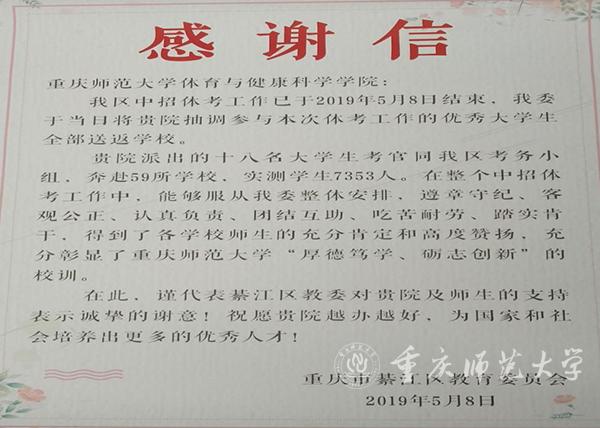 感谢信
重庆师范大学体育与健康科学学院：
我区中招体考工作已于2019年5月8日结束，我委
于当日将贵院抽调参与本次体考工作的优秀大学生
全部送返学校。
贵院派出的十八名大学生考官同我区考务小
组，奔赴59所学校，实测学生7353人。在整个中招体
考工作中，能够服从我委整体安排，遵章守纪、客
观公正、认真负责、团结互助、吃苦耐劳、踏实肯
干，得到了各学校师生的充分肯定和高度赞扬，充
分彰显了重庆师范大学“厚德笃学、砺志创新”的
校训。
在此，谨代表綦江区教委对贵院及师生的支持
表示诚挚的谢意！祝愿贵院越办越好，为国家和社
会培养出更多的优秀人才！
重庆师范大学
重庆市綦江区教育委员会
2019年5月8日